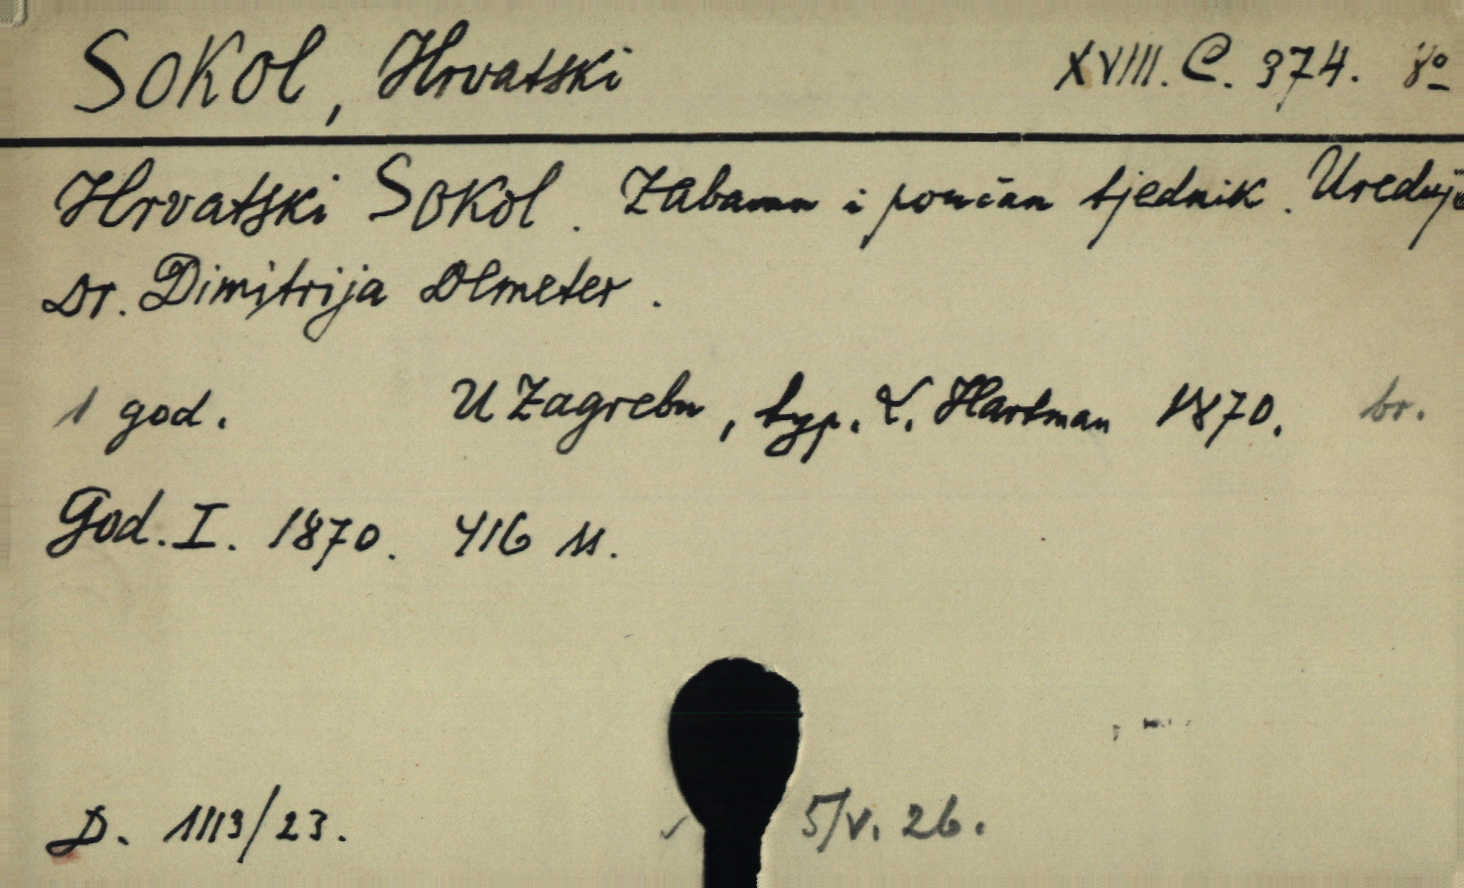 Sokol, Hrvatski XVIII. C. 374. 8º
Hrvatski Sokol. Zabavan i poučan tjednik. Uređuje
Dr. Dimitrija Demeter.
1 god. U Zagrebu, typ. L. Hartman 1870. br.
God. I. 1870. 416 ss.
D. 1113/23. ✓ 5/V. 26.